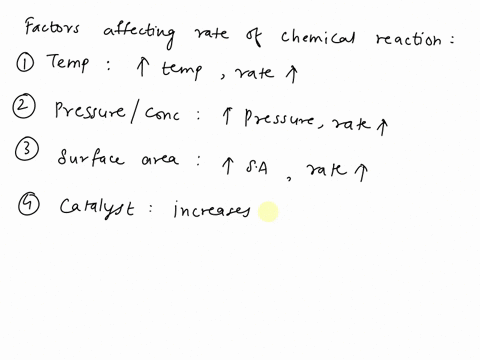 Factors affecting rate of chemical reaction :
① Temp : ↑ temp , rate ↑
② Pressure / conc : ↑ Pressure, rate ↑
③ Surface area : ↑ S.A , rate ↑
④ Catalyst : increases